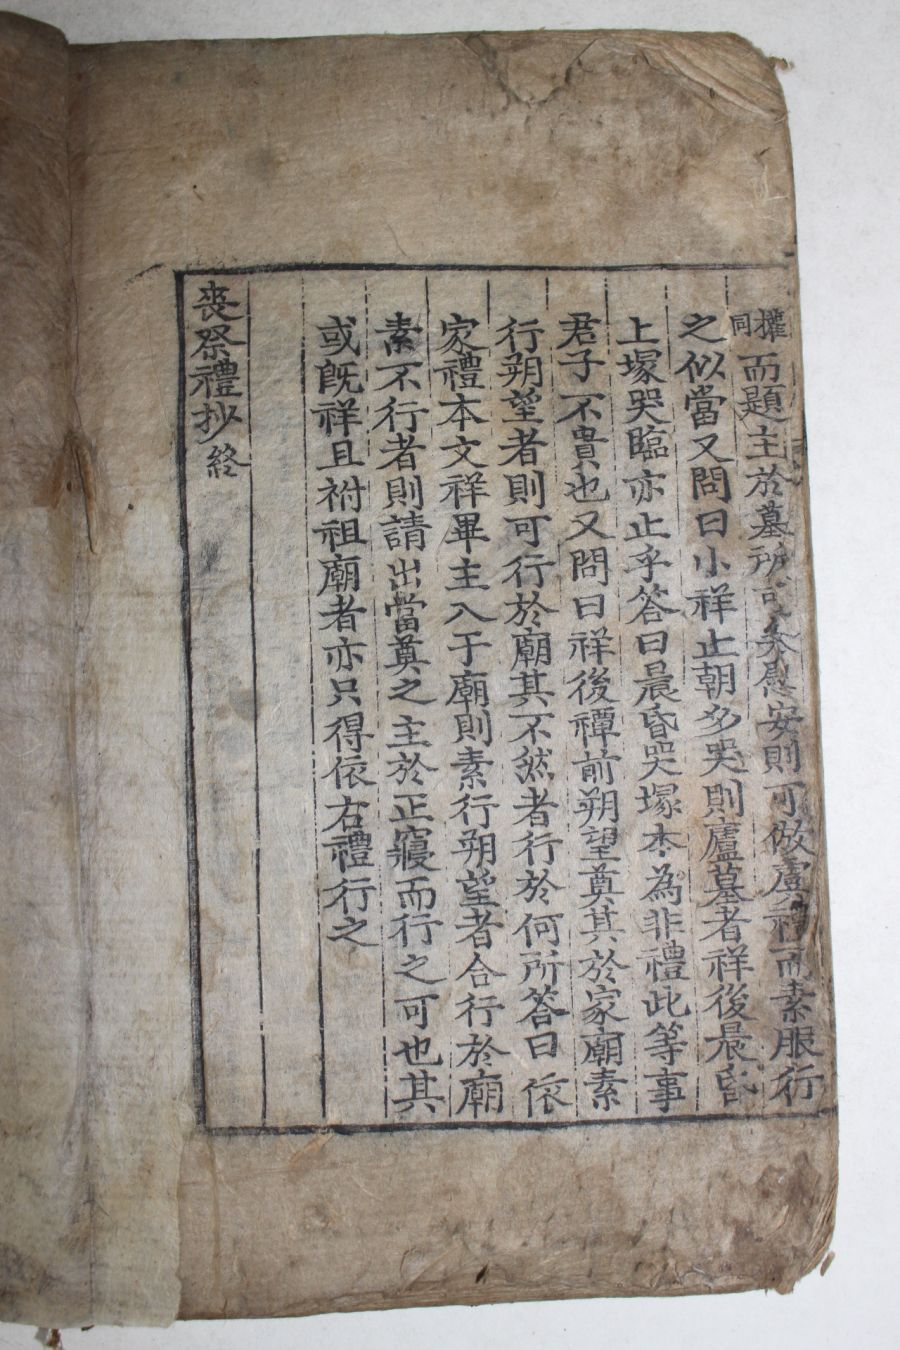 權同而題主於墓所亦慰安則可倣虞禮而素服行
之似當又問曰小祥止朝夕哭則廬墓者祥後晨昏
上塚哭臨亦止乎答曰晨昏哭塚本為非禮此等事
君子不貴也又問曰祥後禫前朔望奠其於家廟素
行朔望者則可行於廟其不然者行於何所答曰依
家禮本文祥畢主入于廟則素行朔望者合行於廟
素不行者則請出當奠之主於正寢而行之可也其
或既祥且祔祖廟者亦只得依右禮行之
喪祭禮抄 終